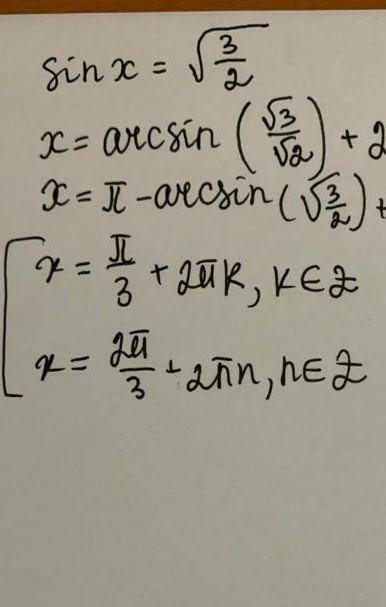 sin x = √(3/2)
x = arcsin (√3/√2) + 2
x = π - arcsin (√(3/2)) +
[ x = π/3 + 2πk, k ∈ Z
x = 2π/3 + 2πn, n ∈ Z